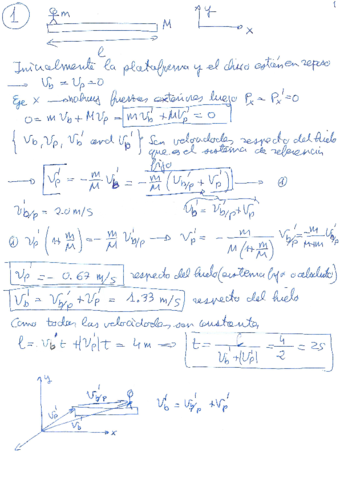 1
1
m
M
l
y
x
Inicialmente la plataforma y el chico están en reposo
→ V_b = V_p = 0
Eje x → no hay fuerzas exteriores luego P_x = P_x' = 0
0 = m V_b + M V_p = m V_b' + M V_p' = 0
{ V_b, V_p, V_b' and V_p' } Son velocidades respecto del hielo
que es el sistema de referencia
fijo
→ V_p' = - m/M V_b' = - m/M (V_b/p' + V_p') → ①
V_b/p' = 2.0 m/s V_b' = V_b/p' + V_p'
① V_p' (1 + m/M) = - m/M V_b/p' → V_p' = - m / M(1 + m/M) V_b/p' = - m/M+m V_b/p'
V_p' = - 0.67 m/s respecto del hielo (sistema fijo o absoluto)
V_b' = V_b/p' + V_p' = 1.33 m/s respecto del hielo
Como todas las velocidades son constantes
l = V_b' t + |V_p'| t = 4 m ⇒ t = l / V_b' + |V_p'| = 4/2 = 2 s
y
V_b/p'
V_b' = V_b/p' + V_p'
V_p'
V_b'
x